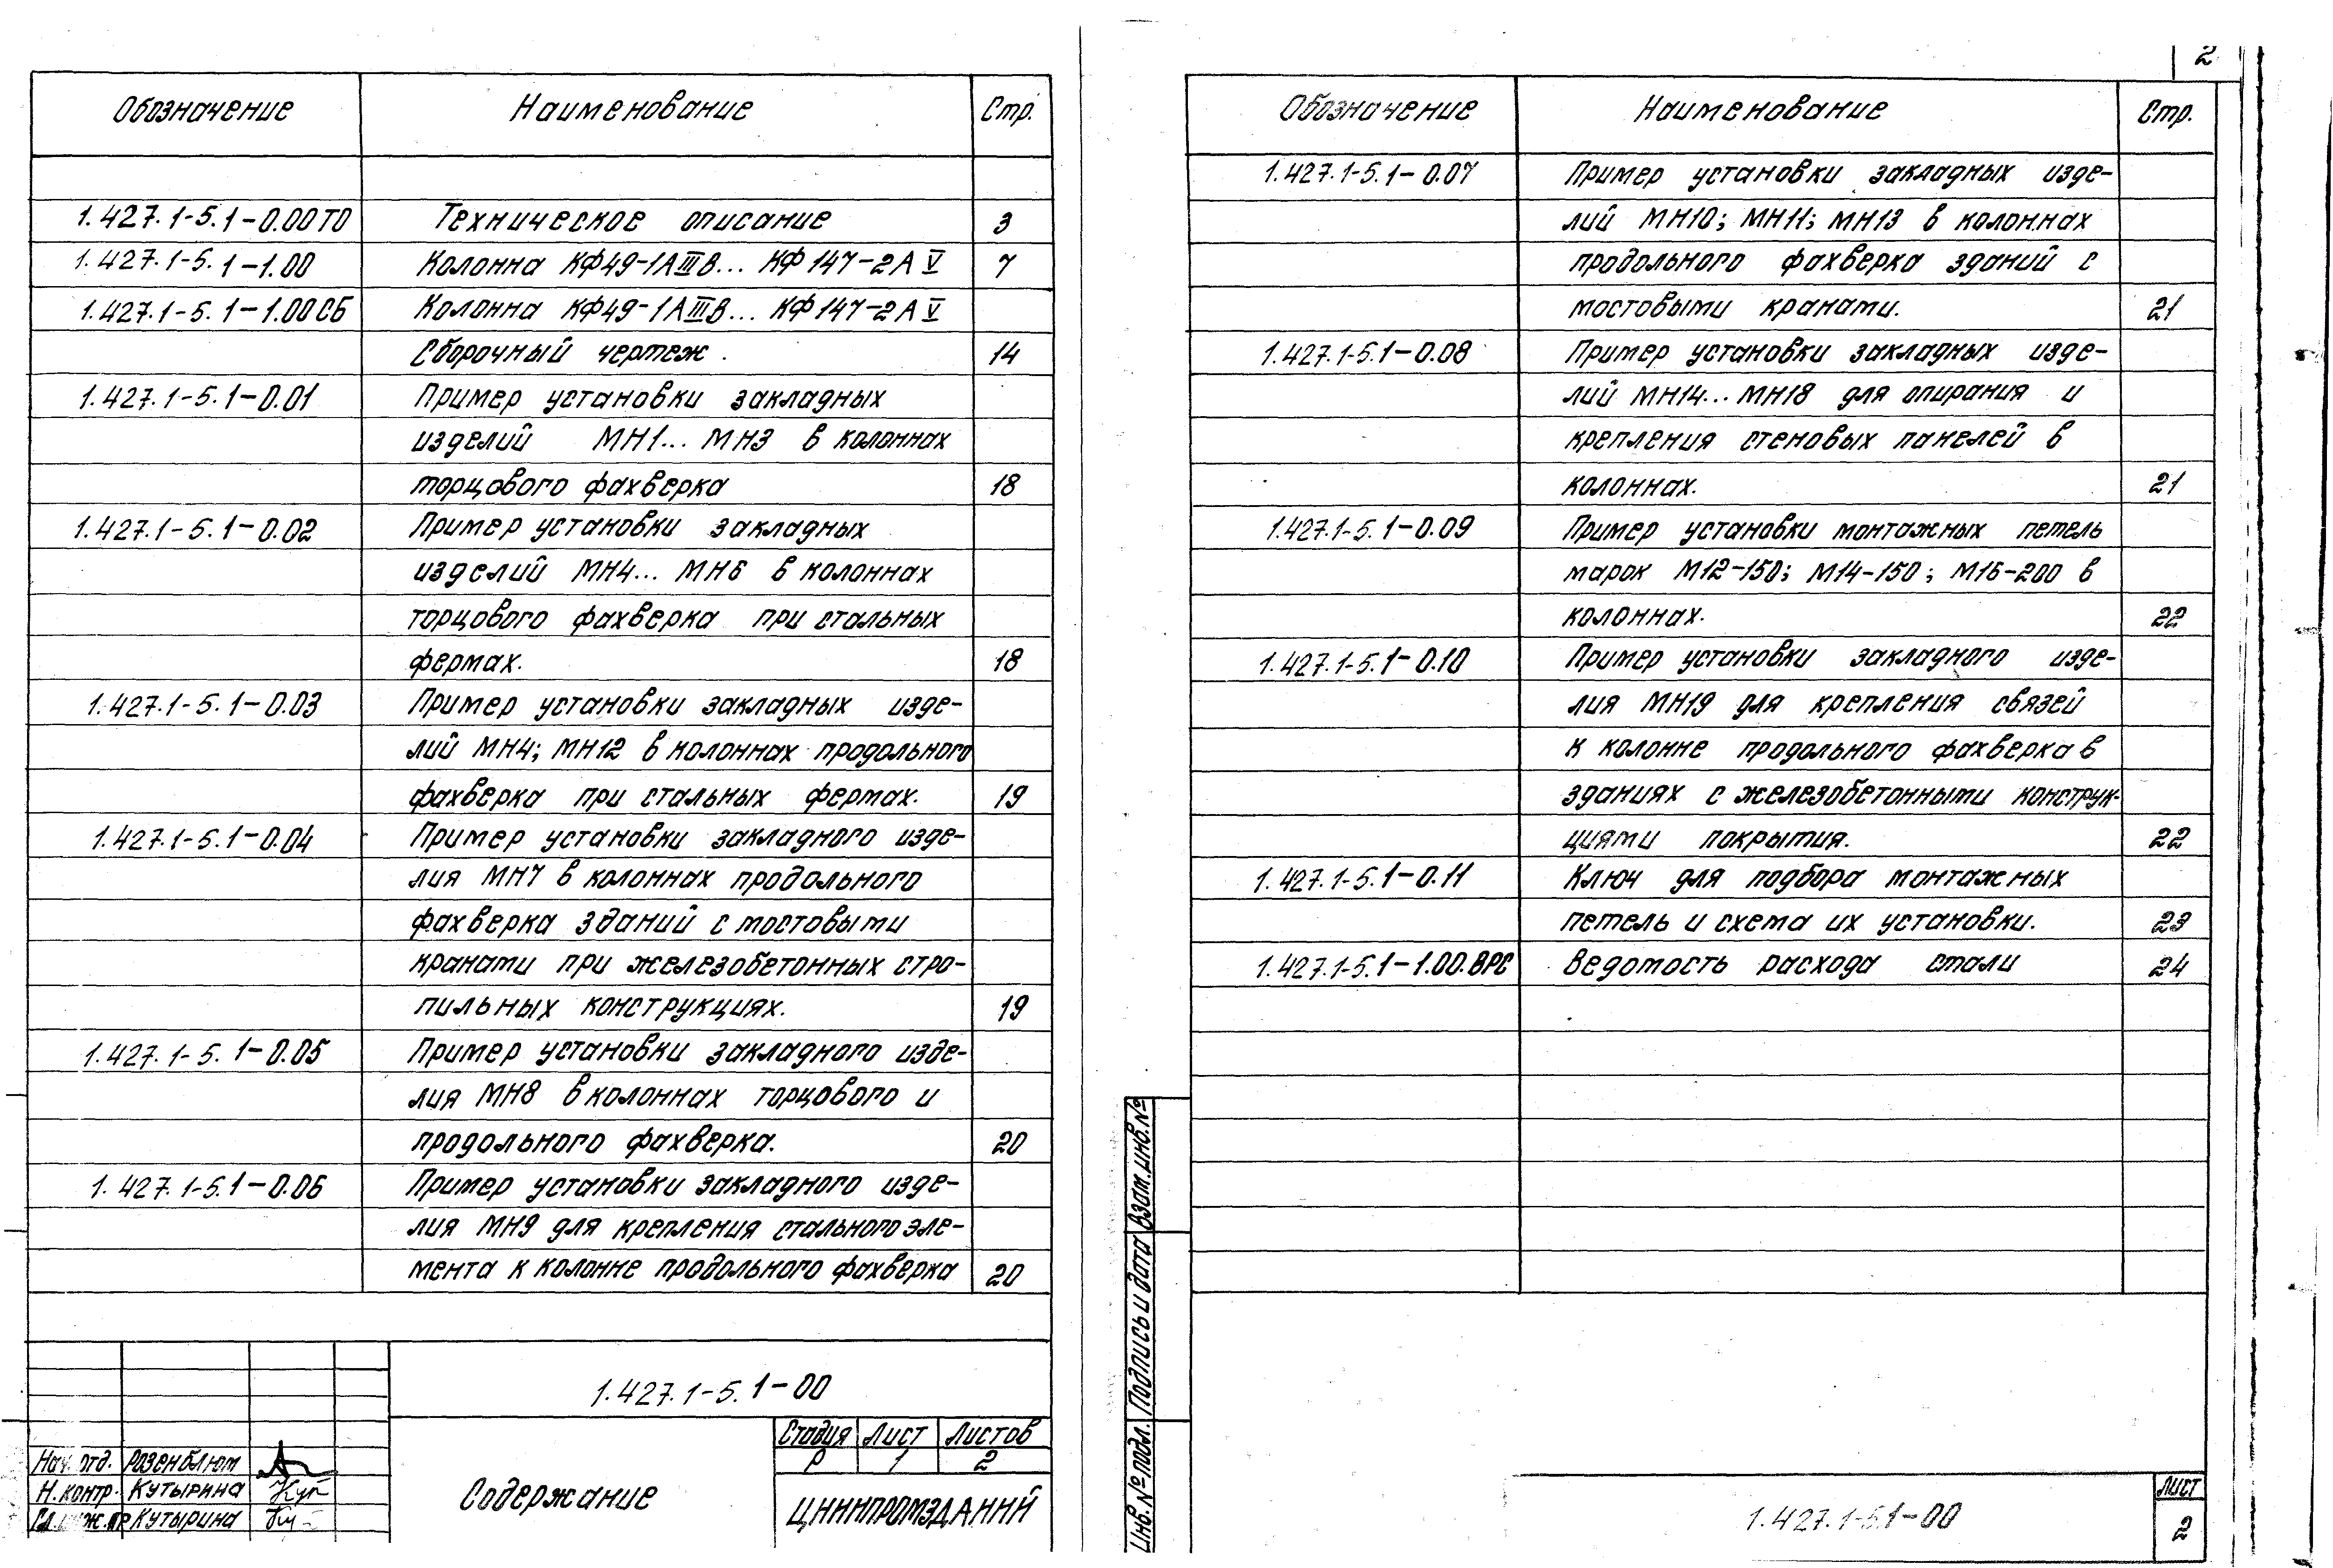 Обозначение Наименование Стр.
1.427.1-5.1-0.00ТО Техническое описание 3
1.427.1-5.1-1.00 Колонна КФ49-1АIIIВ... КФ147-2АV 7
1.427.1-5.1-1.00СБ Колонна КФ49-1АIIIВ... КФ147-2АV
Сборочный чертеж. 14
1.427.1-5.1-0.01 Пример установки закладных
изделий МН1... МН3 в колоннах
торцового фахверка 18
1.427.1-5.1-0.02 Пример установки закладных
изделий МН4... МН6 в колоннах
торцового фахверка при стальных
фермах. 18
1.427.1-5.1-0.03 Пример установки закладных изде-
лий МН4; МН12 в колоннах продольного
фахверка при стальных фермах. 19
1.427.1-5.1-0.04 Пример установки закладного изде-
лия МН7 в колоннах продольного
фахверка зданий с мостовыми
кранами при железобетонных стро-
пильных конструкциях. 19
1.427.1-5.1-0.05 Пример установки закладного изде-
лия МН8 в колоннах торцового и
продольного фахверка. 20
1.427.1-5.1-0.06 Пример установки закладного изде-
лия МН9 для крепления стального эле-
мента к колонне продольного фахверка 20
1.427.1-5.1-00
Стадия Лист Листов
Р 1 2
Нач. отд. Розенблюм
Н. контр. Кутырина
Гл. инж. пр Кутырина
Содержание
ЦНИИПРОМЗДАНИЙ
2
Обозначение Наименование Стр.
1.427.1-5.1-0.07 Пример установки закладных изде-
лий МН10; МН11; МН13 в колоннах
продольного фахверка зданий с
мостовыми кранами. 21
1.427.1-5.1-0.08 Пример установки закладных изде-
лий МН14... МН18 для опирания и
крепления стеновых панелей в
колоннах. 21
1.427.1-5.1-0.09 Пример установки монтажных петель
марок М12-150; М14-150; М16-200 в
колоннах. 22
1.427.1-5.1-0.10 Пример установки закладного изде-
лия МН19 для крепления связей
к колонне продольного фахверка в
зданиях с железобетонными конструк-
циями покрытия. 22
1.427.1-5.1-0.11 Ключ для подбора монтажных
петель и схема их установки. 23
1.427.1-5.1-1.00.ВРС Ведомость расхода стали 24
Взам. инв. №
Подпись и дата
Инв. № подл.
1.427.1-5.1-00
Лист
2